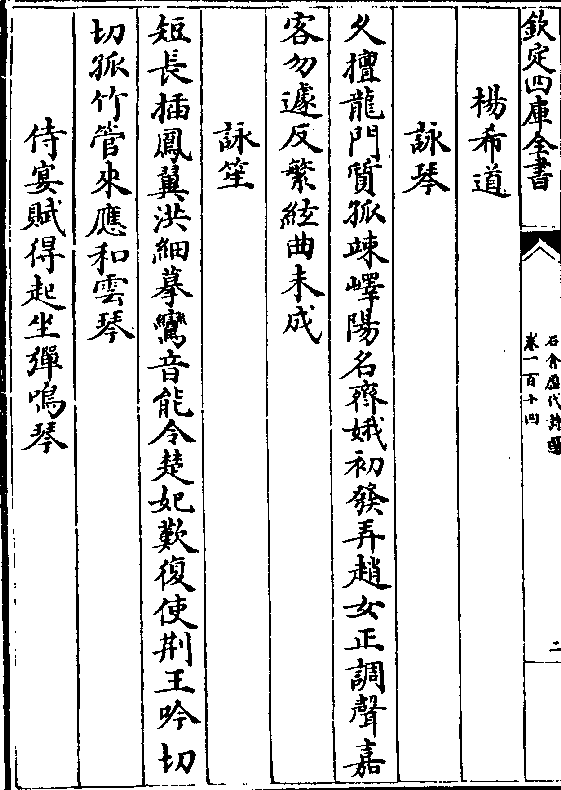 欽定四庫全書
石倉歷代詩選
卷一百十四
二
楊希道
詠琴
久擅龍門質孤竦嶧陽名齊娥初發弄趙女正調聲嘉
客勿遽反繁絃曲未成
詠笙
短長插鳳翼洪細摹鸞音能令楚妃歎復使荆王吟切
切孤竹管來應和雲琴
侍宴賦得起坐彈鳴琴